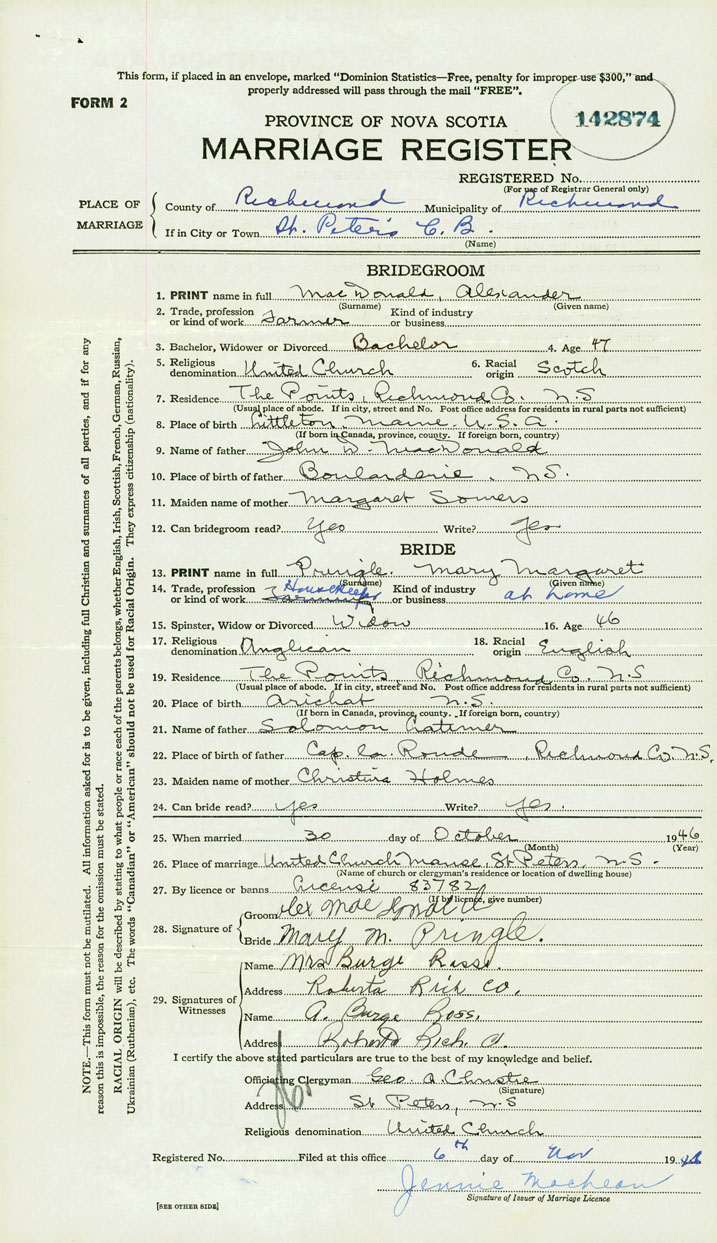 This form, if placed in an envelope, marked "Dominion Statistics—Free, penalty for improper use $300," and
properly addressed will pass through the mail "FREE".
FORM 2
142874
PROVINCE OF NOVA SCOTIA
MARRIAGE REGISTER
REGISTERED No.
(For use of Registrar General only)
PLACE OF MARRIAGE
County of Richmond Municipality of Richmond
If in City or Town St. Peter's C. B.
(Name)
BRIDEGROOM
1. PRINT name in full MacDonald, Alexander
(Surname) (Given name)
2. Trade, profession or kind of work Farmer Kind of industry or business
3. Bachelor, Widower or Divorced Bachelor 4. Age 47
5. Religious denomination United Church 6. Racial origin Scotch
7. Residence The Points, Richmond Co. N.S
(Usual place of abode. If in city, street and No. Post office address for residents in rural parts not sufficient)
8. Place of birth Littleton, Maine. U.S.A.
(If born in Canada, province, county. If foreign born, country)
9. Name of father John D. MacDonald
10. Place of birth of father Boularderie, N.S.
11. Maiden name of mother Margaret Somers
12. Can bridegroom read? Yes Write? Yes
BRIDE
13. PRINT name in full Pringle. Mary Margaret
(Surname) (Given name)
14. Trade, profession or kind of work Housekeeper Farming Kind of industry or business at home
15. Spinster, Widow or Divorced Widow 16. Age 46
17. Religious denomination Anglican 18. Racial origin English
19. Residence The Points, Richmond Co. N.S
(Usual place of abode. If in city, street and No. Post office address for residents in rural parts not sufficient)
20. Place of birth Arichat N.S.
(If born in Canada, province, county. If foreign born, country)
21. Name of father Solomon Latimer
22. Place of birth of father Cap. la. Ronde, Richmond Co. N.S.
23. Maiden name of mother Christina Holmes
24. Can bride read? yes Write? yes.
25. When married 30 day of October 1946
(Month) (Year)
26. Place of marriage United Church Manse, St Peters, N.S.
(Name of church or clergyman's residence or location of dwelling house)
27. By licence or banns License 83782
(If by licence, give number)
28. Signature of
Groom Alex MacDonald
Bride Mary M. Pringle.
29. Signatures of Witnesses
Name Mrs Burge Ross.
Address Roberta Rich Co.
Name A. Burge Ross.
Address Roberta Rich. Co.
I certify the above stated particulars are true to the best of my knowledge and belief.
Officiating Clergyman Geo. A. Christie
(Signature)
Address St Peters, N.S
Religious denomination United Church
Registered No. Filed at this office 6th day of Nov 1946
Jennie MacLean
Signature of Issuer of Marriage Licence
[SEE OTHER SIDE]
NOTE.—This form must not be mutilated. All information asked for is to be given, including full Christian and surnames of all parties, and if for any
reason this is impossible, the reason for the omission must be stated.
RACIAL ORIGIN will be described by stating to what people or race each of the parents belongs, whether English, Irish, Scottish, French, German, Russian,
Ukrainian (Ruthenian), etc. The words "Canadian" or "American" should not be used for Racial Origin. They express citizenship (nationality).